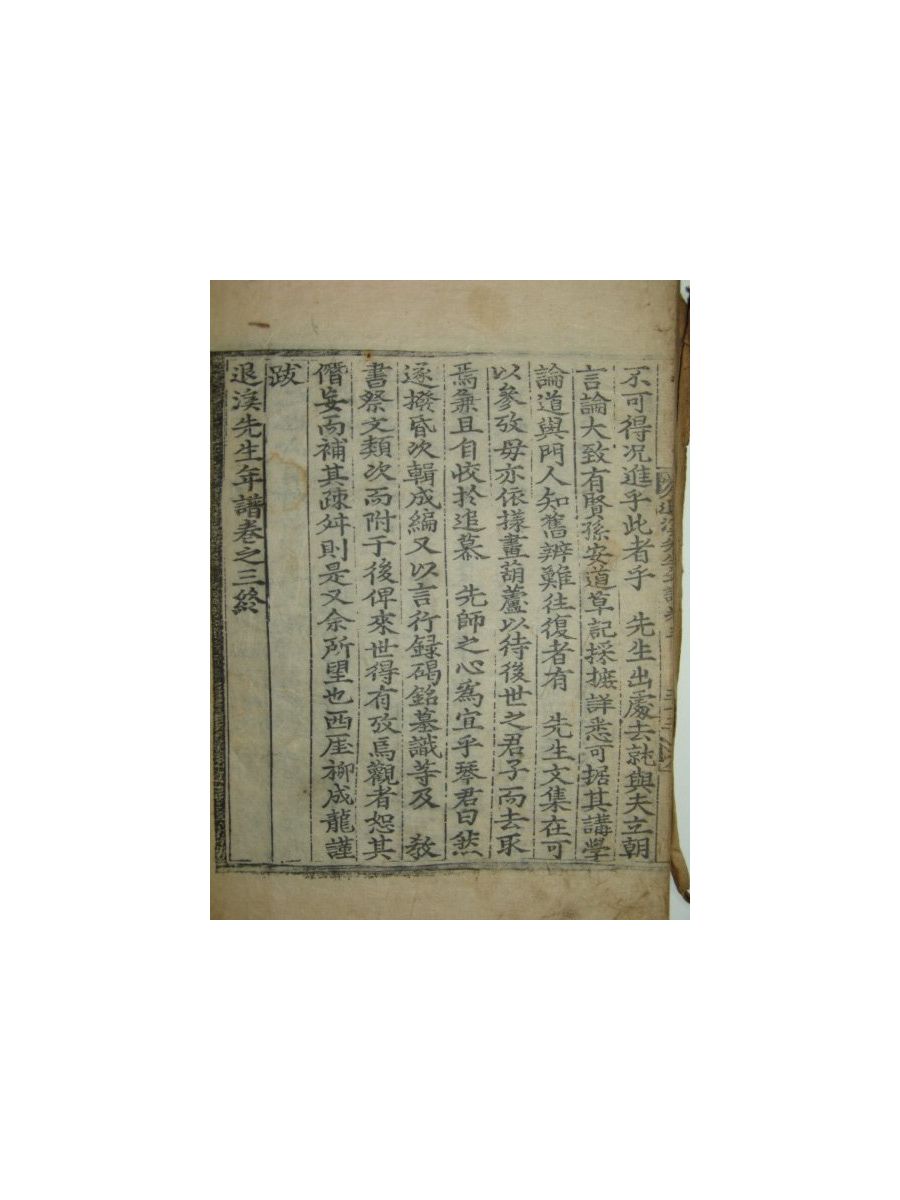 不可得况進乎此者乎　先生出處去就與夫立朝
言論大致有賢孫安道草記採摭詳悉可据其講學
論道與門人知舊辨難往復者有　先生文集在可
以參攷毋亦依樣畫葫蘆以待後世之君子而去取
焉兼且自恔於追慕　先師之心爲宜乎琴君曰然
遂撥昏次輯成編又以言行録碣銘墓識等及　敎
書祭文類次而附于後俾來世得有攷焉觀者恕其
僭妄而補其疎舛則是又余所望也西厓柳成龍謹
跋
退溪先生年譜卷之三終